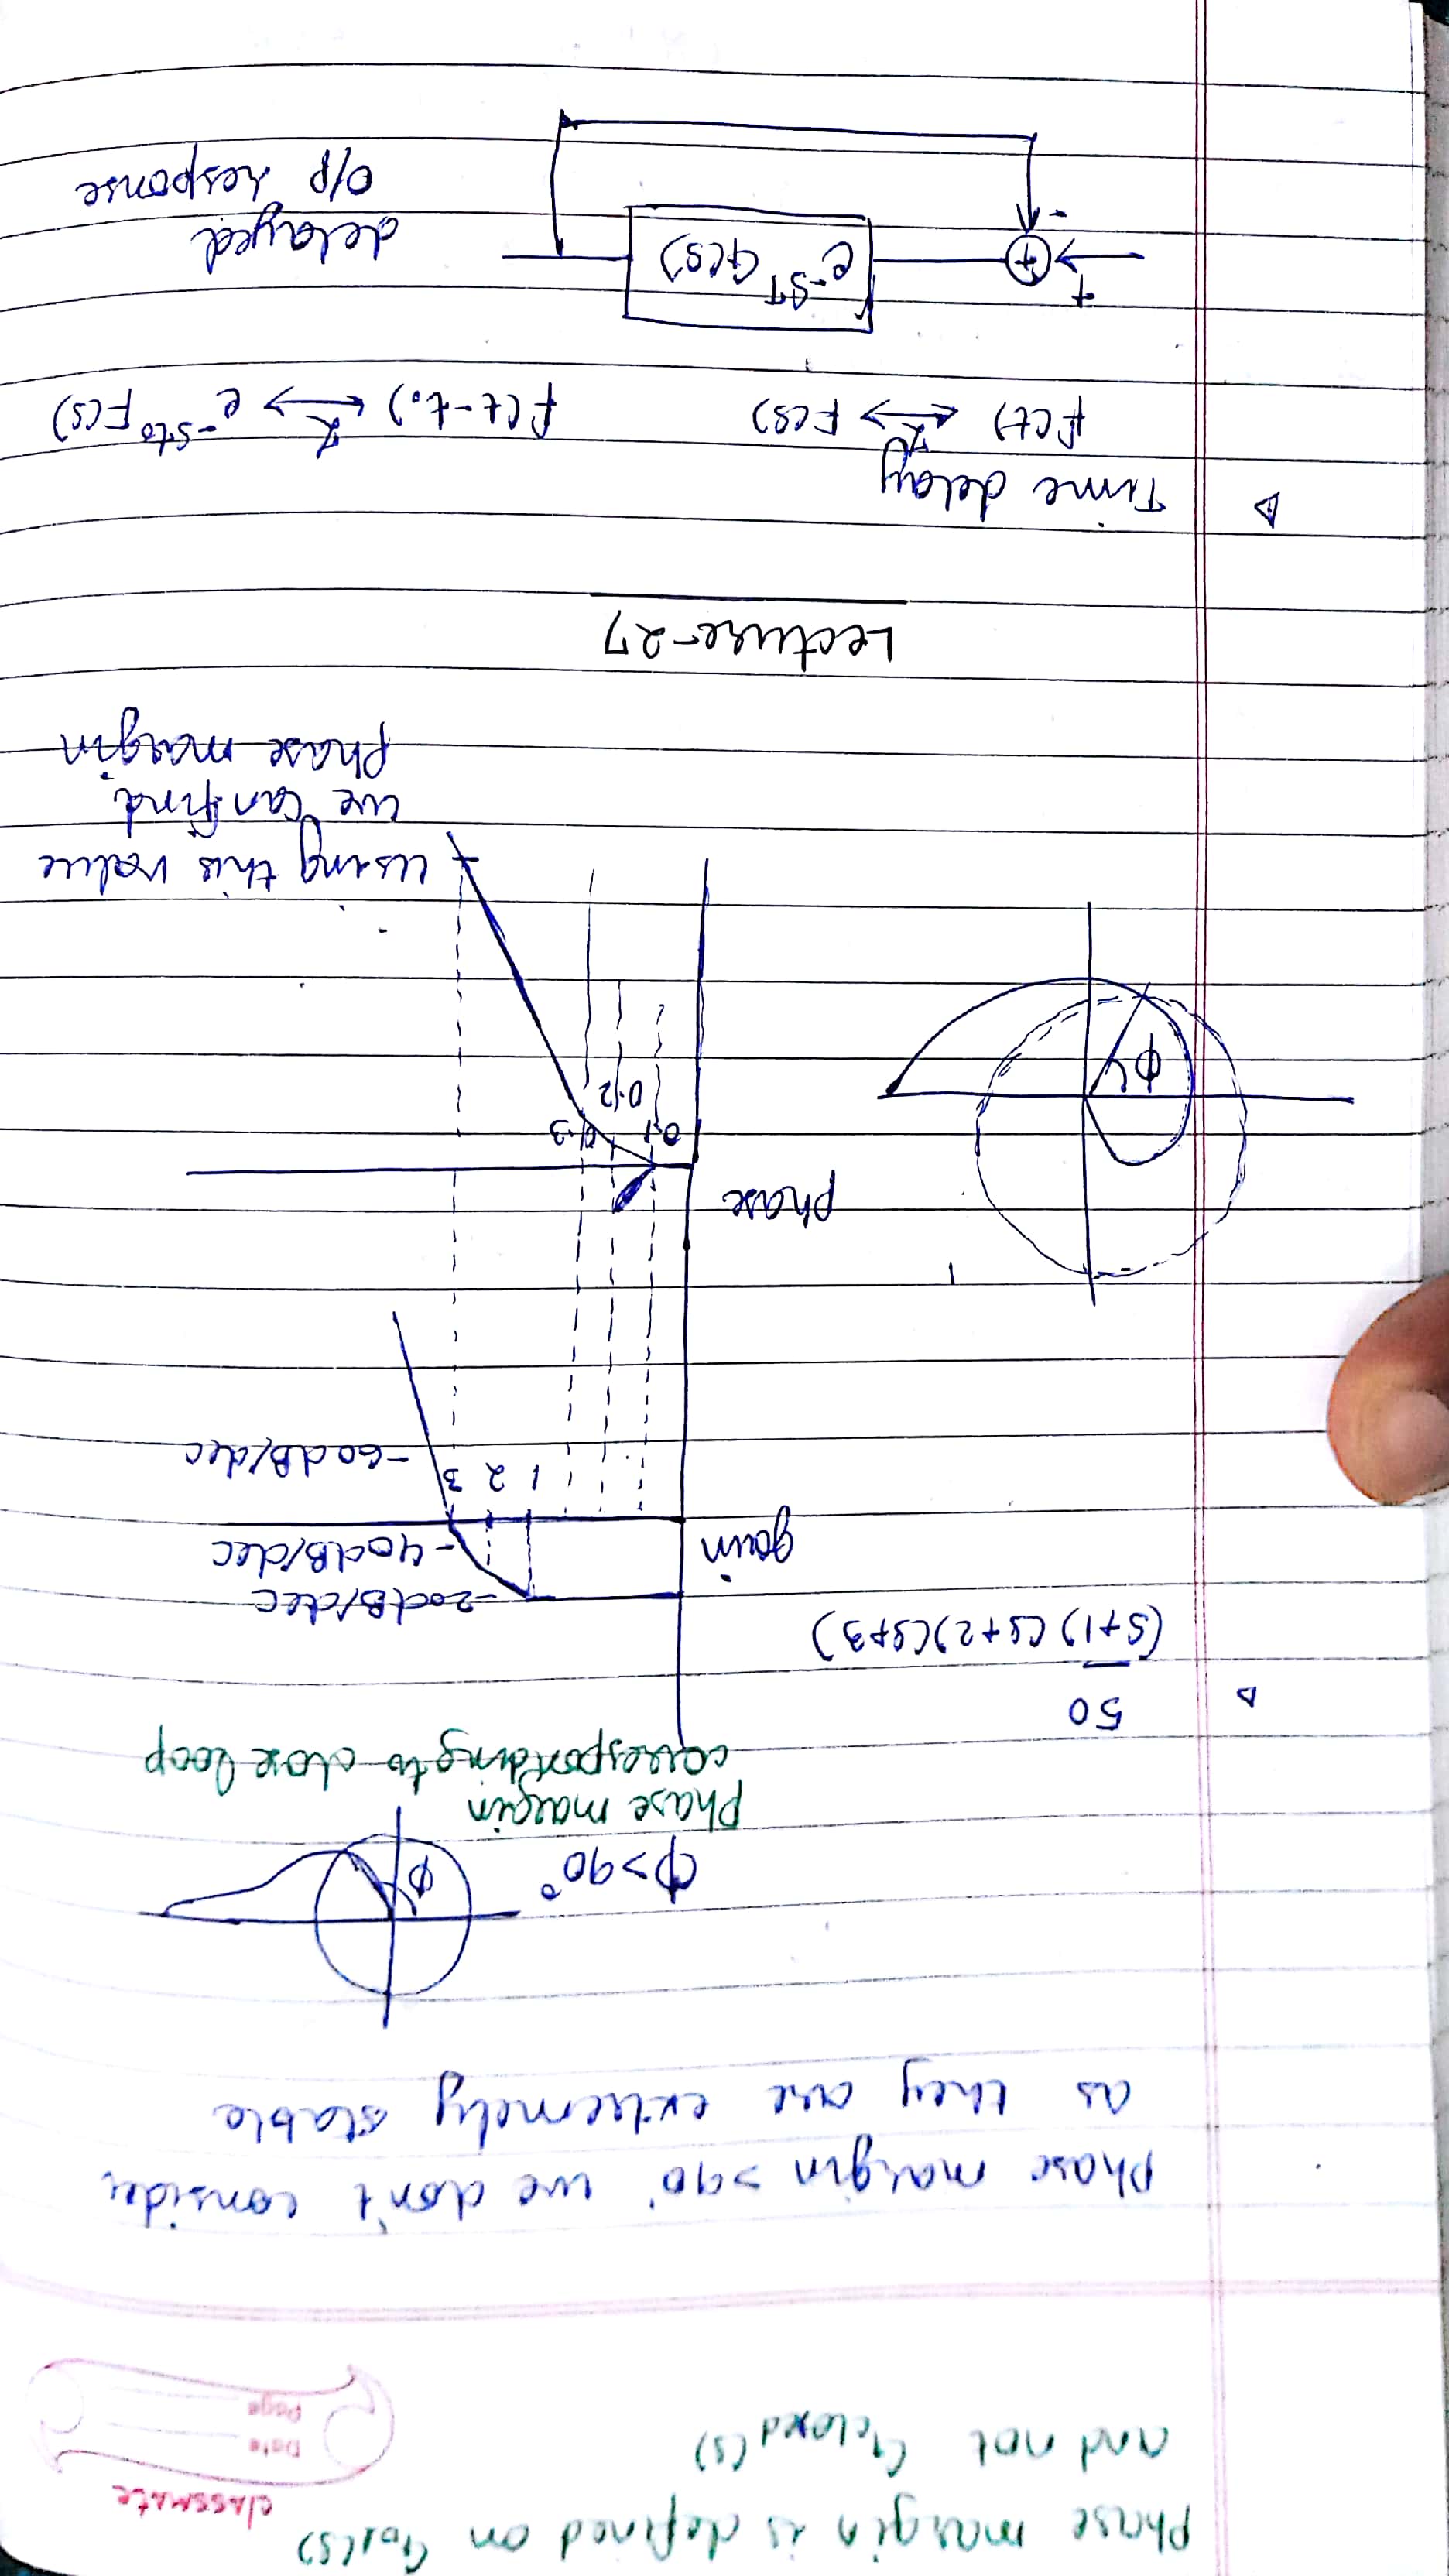 Phase margin is defined on GOL(s)
and not Gclosed(s)
classmate
Date
Page
Phase margin >90° we don't consider
as they are extremely stable
ϕ
ϕ>90°
Phase margin
corresponding to close loop
▷ 50
(S+1)(S+2)(S+3)
gain
-20dB/dec
-40dB/dec
1 2 3
-60dB/dec
phase
0.1 0.2 0.3
ϕ
using this value
we can find
phase margin
Lecture-27
▷ Time delay
f(t) ⟷ F(s) f(t-t₀) ⟷ e^-st₀ F(s)
+
+
-
e^-sT G(s)
delayed
O/P response